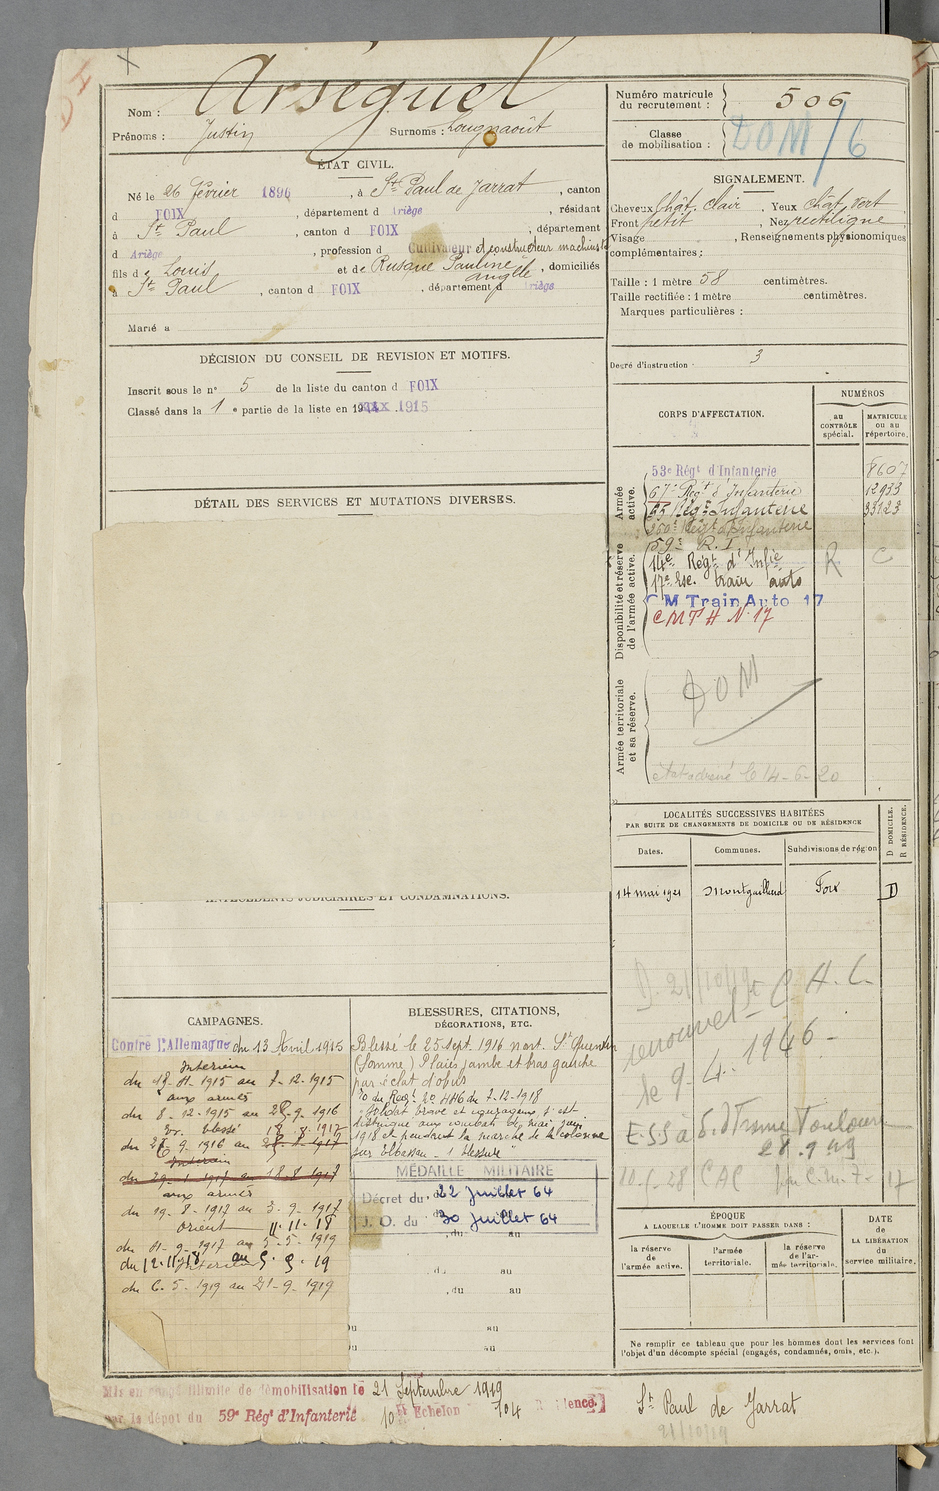 Nom : Arséguel
Prénoms : Justin Surnoms : Lougnaoüt
ÉTAT CIVIL.
Né le 26 février 1896, à St Paul de Jarrat, canton
d FOIX, département d Ariège, résidant
à St Paul, canton d FOIX, département
d Ariège, profession d Cultivateur et constructeur machiniste
fils de Louis et de Pauline angèle, domiciliés
à St Paul, canton d FOIX, département d Ariège
Marié a
DÉCISION DU CONSEIL DE REVISION ET MOTIFS.
Inscrit sous le n° 5 de la liste du canton d FOIX
Classé dans la 1 e partie de la liste en 1915
DÉTAIL DES SERVICES ET MUTATIONS DIVERSES.
ANTÉCÉDENTS JUDICIAIRES ET CONDAMNATIONS.
CAMPAGNES.
Contre l'Allemagne du 13 Avril 1915
Intérieur
du 13-4-1915 au 7-12-1915
aux armées
du 8-12-1915 au 25-9-1916
blessé
du 26-9-1916 au
Intérieur
aux armées
du 19-8-1917 au 3-9-1917
Orient 11-11-18
du 4-9-1917 au 5-5-1919
du 12-11-18 au 5-5-19
du 6-5-1919 au 21-9-1919
BLESSURES, CITATIONS,
DÉCORATIONS, ETC.
Blessé le 25 sept. 1916 nort. St Quentin
(Somme) Plaies jambe et bras gauche
par éclat d'obus
O du Régt n° 446 du 7-12-1918
"Soldat brave et courageux, s'est
distingué aux combats de mai, juin
1918 et pendant la marche de la colonne
sur Elbassan - 1 blessure"
MÉDAILLE MILITAIRE
Décret du 22 Juillet 64
J. O. du 30 Juillet 64
, du au
, du au
, du au
Du au
Du au
Mis en congé illimité de démobilisation le 21 Septembre 1919
par le dépôt du 59e Régt d'Infanterie 10 Echelon 704 Résidence]
St Paul de Jarrat
21/10/19
Numéro matricule
du recrutement : 506
Classe
de mobilisation : DOM/6
SIGNALEMENT.
Cheveux chât. clair, Yeux chât. vert,
Front petit, Nez rectiligne
Visage , Renseignements physionomiques
complémentaires :
Taille : 1 mètre 58 centimètres.
Taille rectifiée : 1 mètre centimètres.
Marques particulières :
Degré d'instruction 3
CORPS D'AFFECTATION.
NUMÉROS
au
CONTRÔLE
spécial.
MATRICULE
ou au
répertoire.
Armée
active.
53e Régt d'Infanterie 8607
67e Régt d'Infanterie 12933
Régt Infanterie 33123
260e Régt d'Infanterie
59e R. I
Disponibilité et réserve
de l'armée active.
14e Régt d'Infie R C
17e Esc. train auto
C M Train Auto 17
C M T H N° 17
Armée territoriale
et sa réserve.
DOM
le 14-6-20
LOCALITÉS SUCCESSIVES HABITÉES
PAR SUITE DE CHANGEMENTS DE DOMICILE OU DE RÉSIDENCE
Dates.
Communes.
Subdivisions de région
D DOMICILE.
R RÉSIDENCE.
14 mai 1921 Montgailhard Foix D
D. 21/10/19
C A C
le 9. 4. 1946
Toulouse
CAC
17
ÉPOQUE
A LAQUELLE L'HOMME DOIT PASSER DANS :
la réserve
de
l'armée active.
l'armée
territoriale.
la réserve
de l'ar-
mée territoriale.
DATE
de
LA LIBÉRATION
du
service militaire.
Ne remplir ce tableau que pour les hommes dont les services font
l'objet d'un décompte spécial (engagés, condamnés, omis, etc.).